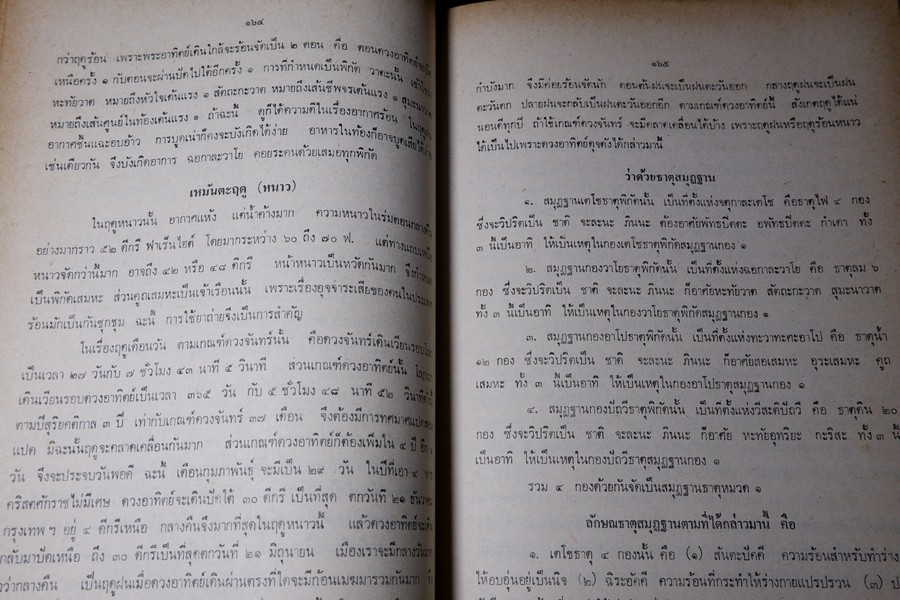 ๑๖๔
กว่าฤดูร้อน เพราะพระอาทิตย์เดินใกล้จะร้อนจัดเป็น ๒ ตอน คือ ตอนดวงอาทิตย์จะปัด
เหนือครั้ง ๑ กับตอนจะผ่านปัดไปใต้อีกครั้ง ๑ การที่กำหนดเป็นพิกัด วาตะนั้น เข้าใจว่า
หะทัยวาต หมายถึงหัวใจเต้นแรง ๑ สัตถะกะวาต หมายถึงเส้นชีพจรเต้นแรง ๑ สุมะนาวาต
หมายถึงเส้นศูนย์ในท้องเต้นแรง ๑ ถ้าฉะนี้ ดูก็ได้ความดีในเรื่องอากาศร้อน
อากาศชื้นแฉะอบอ้าว การบูดเน่าก็คงจะบังเกิดได้ง่าย อาหารในท้องก็อาจบูดเสียได้
เช่นเดียวกัน จึงบังเกิดอาการ ฉอกาละวาโย คอยระคนด้วยเสมอทุกพิกัด
เหมันตะฤดู (หนาว)
ในฤดูหนาวนั้น อากาศแห้ง แต่น้ำค้างมาก ความหนาวในร่มตอนกลางคืน
อย่างมากราว ๕๒ ดีกรี ฟาเร็นไฮต์ โดยมากระหว่าง ๖๐ ถึง ๗๐ ฟ. แต่ทางแถบเหนือ
หนาวจัดกว่านี้มาก อาจถึง ๔๒ หรือ ๔๘ ดีกรี หน้าหนาวเป็นหวัดกันมาก จึงกำหนด
เป็นพิกัดเสมหะ ส่วนคูถเสมหะเป็นเจ้าเรือนนั้น เพราะเรื่องอุจจาระเสียของคนในประเทศ
ร้อนมักเป็นกันชุกชุม ฉะนี้ การใช้ยาถ่ายจึงเป็นการสำคัญ
ในเรื่องฤดูเดือนวัน ตามเกณฑ์ดวงจันทร์นั้น คือดวงจันทร์เดินเวียนรอบโลก
เป็นเวลา ๒๗ วันกับ ๗ ชั่วโมง ๔๓ นาที ๕ วินาที ส่วนเกณฑ์ดวงอาทิตย์นั้น
เดินเวียนรอบดวงอาทิตย์เป็นเวลา ๓๖๕ วัน กับ ๕ ชั่วโมง ๔๘ นาที ๕๒ วินาที
ตามปีสุริยคติกาล ๓ ปี เท่ากับเกณฑ์ดวงจันทร์ ๓๗ เดือน จึงต้องมีการทดมาศแปดสอง
แปด มิฉะนั้นฤดูจะคลาดเคลื่อนกันมาก ส่วนเกณฑ์ดวงอาทิตย์ก็ต้องเพิ่มใน ๔ ปี อีก ๑
วัน จึงจะประจบวันพอดี ฉะนี้ เดือนกุมภาพันธุ์ จะมีเป็น ๒๙ วัน ในปีที่เอา ๔ หาร
คริสตศักราชไม่มีเศษ ดวงอาทิตย์จะเดินปัดใต้ ๓๐ ดีกรี เป็นที่สุด ตกวันที่ ๒๑ ธันวาคม
กรุงเทพ ฯ อยู่ ๔ ดีกรีเหนือ กลางคืนจึงมากที่สุดในฤดูหนาวนี้ แล้วดวงอาทิตย์จะเดิน
กลับมาปัดเหนือ ถึง ๓๐ ดีกรีเป็นที่สุดตกวันที่ ๒๑ มิถุนายน เมืองเราจะมีกลางวันมาก
กว่ากลางคืน เป็นฤดูฝนเมื่อดวงอาทิตย์เดินผ่านตรงที่ใดจะมีก้อนเมฆมารวมกันมาก
๑๖๕
กำบังมาก จึงมีค่อยร้อนจัดนัก ตอนต้นฝนจะเป็นฝนตะวันออก กลางฤดูฝนจะเป็นฝน
ตะวันตก ปลายฝนจะกลับเป็นฝนตะวันออกอีก ตามเกณฑ์ดวงอาทิตย์นี้ สังเกตฤดูได้แน่
นอนดีทุกปี ถ้าใช้เกณฑ์ดวงจันทร์ จะมีคลาดเคลื่อนได้บ้าง เพราะฤดูฝนหรือฤดูร้อนหนาว
ได้เป็นไปเพราะดวงอาทิตย์ดุจดังได้กล่าวมานี้
ว่าด้วยธาตุสมุฏฐาน
๑. สมุฏฐานเตโชธาตุพิกัดนั้น เป็นที่ตั้งแห่งจตุกาละเตโช คือธาตุไฟ ๔ กอง
ซึ่งจะวิปริตเป็น ชาติ จะละนะ ภินนะ ต้องอาศัยพัทธปิตตะ อพัทธปิตตะ กำเดา ทั้ง
๓ นี้เป็นอาทิ ให้เป็นเหตุในกองเตโชธาตุพิกัดสมุฏฐานกอง ๑
๒. สมุฏฐานกองวาโยธาตุพิกัดนั้น เป็นที่ตั้งแห่งฉอกาละวาโย คือ ธาตุลม ๖
กอง ซึ่งจะวิปริตเป็น ชาติ จะละนะ ภินนะ ก็อาศัยหะทัยวาต สัตถะกะวาต สุมะนาวาต
ทั้ง ๓ นี้เป็นอาทิ ให้เป็นเหตุในกองวาโยธาตุพิกัดสมุฏฐานกอง ๑
๓. สมุฏฐานกองอาโปธาตุพิกัดนั้น เป็นที่ตั้งแห่งทะวาทะศะอาโป คือ ธาตุน้ำ
๑๒ กอง ซึ่งจะวิปริตเป็น ชาติ จะละนะ ภินนะ ก็อาศัยสอเสมหะ อุระเสมหะ คูถ
เสมหะ ทั้ง ๓ นี้เป็นอาทิ ให้เป็นเหตุในกองอาโปธาตุสมุฏฐานกอง ๑
๔. สมุฏฐานกองปัถวีธาตุพิกัดนั้น เป็นที่ตั้งแห่งวีสะติปัถวี คือ ธาตุดิน ๒๐
กอง ซึ่งจะวิปริตเป็น ชาติ จะละนะ ภินนะ ก็อาศัย หะทัยอุทริยะ กะริสะ ทั้ง ๓ นี้
เป็นอาทิ ให้เป็นเหตุในกองปัถวีธาตุสมุฏฐานกอง ๑
รวม ๔ กองด้วยกันจัดเป็นสมุฏฐานธาตุหมวด ๑
ลักษณธาตุสมุฏฐานตามที่ได้กล่าวมานี้ คือ
๑. เตโชธาตุ ๔ กองนั้น คือ (๑) สันตะปัคคี ความร้อนสำหรับทำร่าง
ให้อบอุ่นอยู่เป็นนิจ (๒) ฉิระอัคคี ความร้อนที่กระทำให้ร่างกายแปรปรวน (๓)